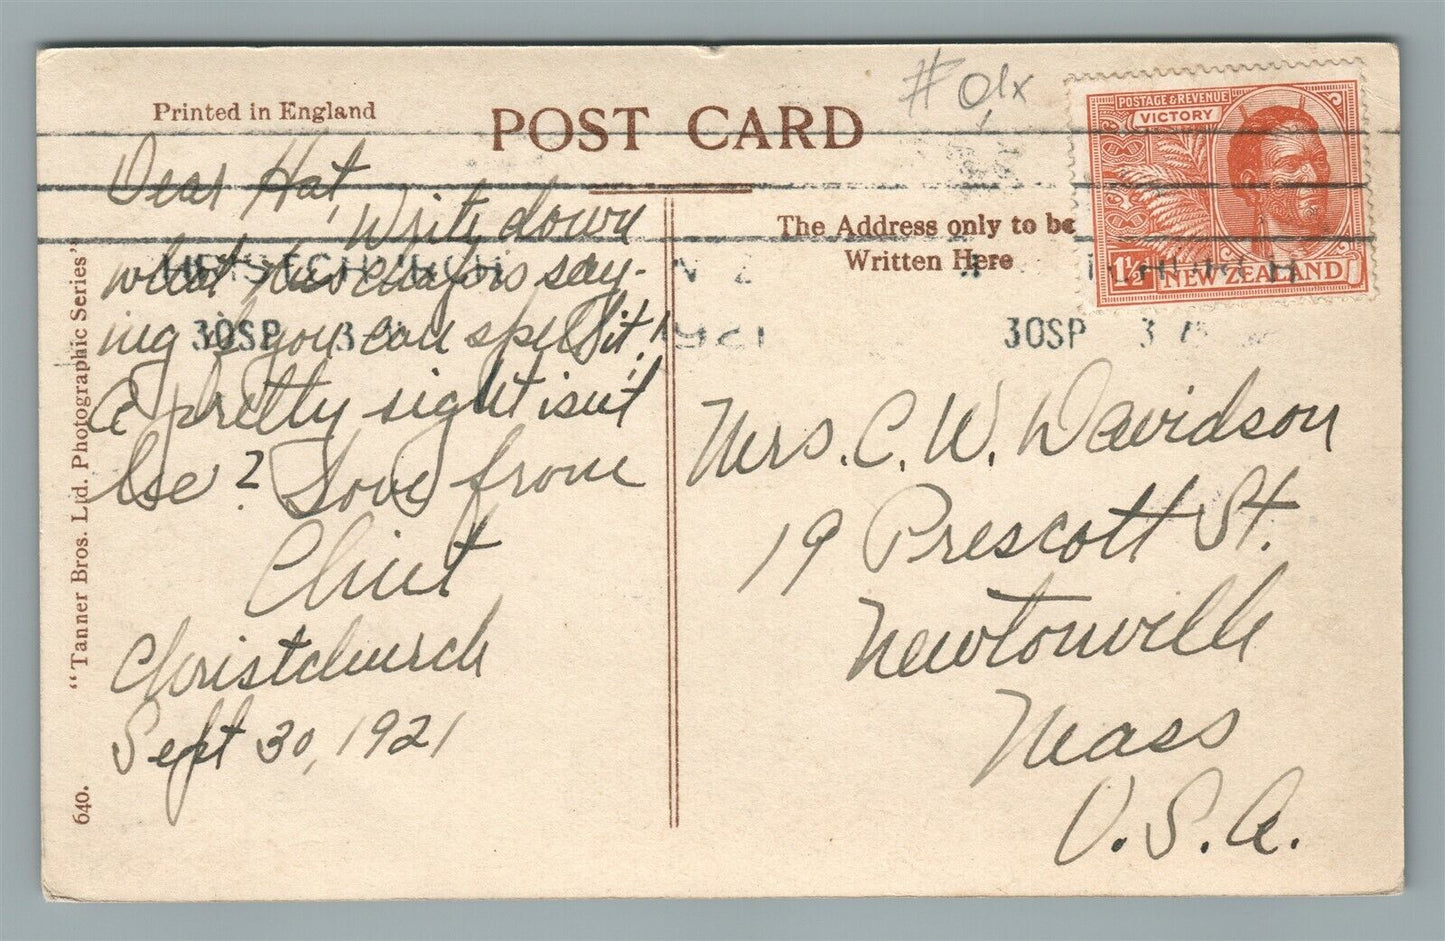 Printed in England
POST CARD
# 01x
POSTAGE & REVENUE
VICTORY
1½d NEW ZEALAND
The Address only to be
Written Here
30SP 3
1921
30SP 3
Dear Hat,
Write down
what this say-
ing if you can spell it!
A pretty sight isn't
he? Love from
Clint
Christchurch
Sept 30, 1921
Mrs. C. W. Davidson
19 Prescott St.
Newtonville
Mass
U.S.A.
"Tanner Bros. Ltd. Photographic Series"
640.